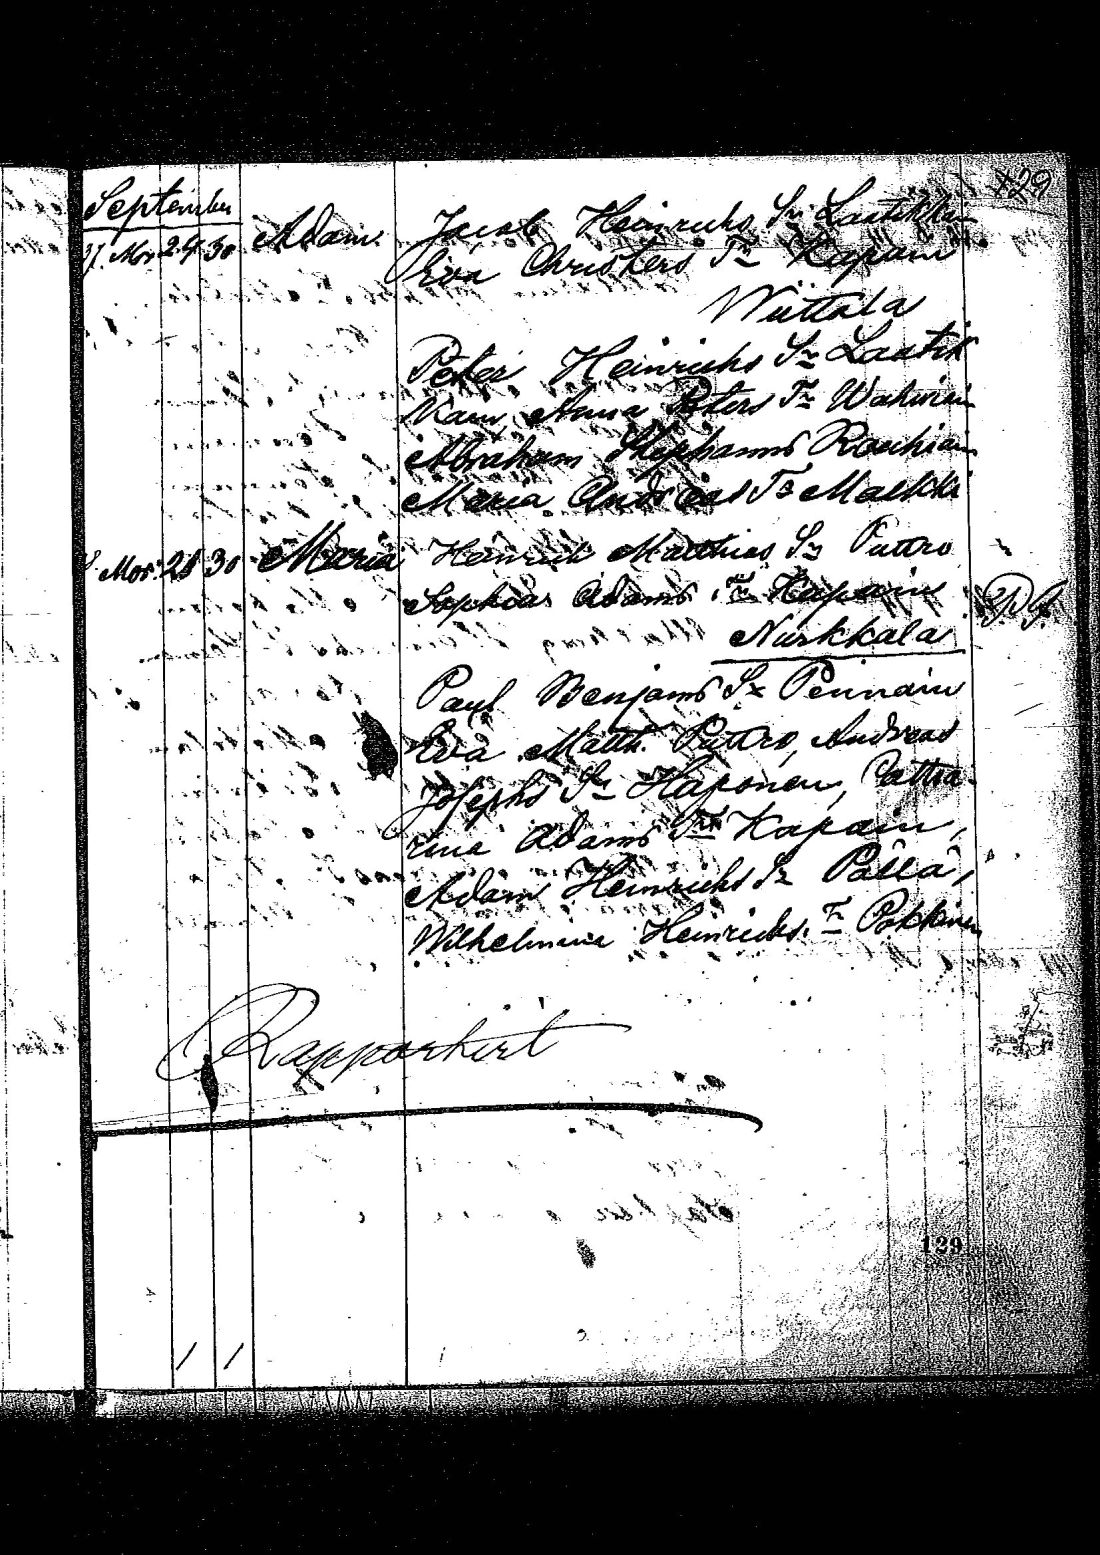 129
September
37. Mor. 24 30 Adam. Jacob Heinrichs Sn Laatikkai
Eva Christers Tr Kapain
Wüttala
Peter Heinrichs Sn Laatik
kain, Anna Peters Tr Wahwiain
Abraham Stephanus Roschiain
Maria Andreas Tr Malkki
Mor. 28 30 Maria Heinrich Matthias Sn Puttro
Sophia Adams Tr Kapain
Nurkkala
Paul Benjams Sn Pennain
Eva Matth. Puttro, Andreas
Josephs Sn Haponen, Catha-
rina Adams Tr Kapain,
Adam Heinrichs Sn Pällä,
Wilhelmina Heinrichs. Tr Pokkinen
Rapportirt
129
1 1